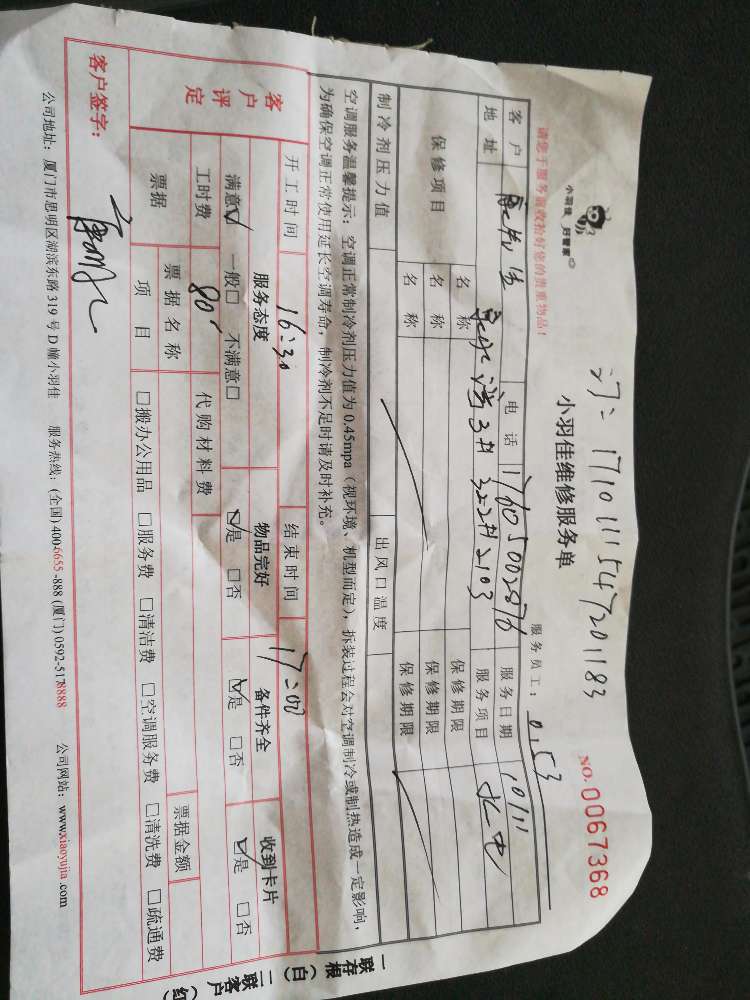 小羽佳 好管家
订: 1710111547201183
小羽佳维修服务单
NO.0067368
请您于服务前收拾好您的贵重物品！
服务员工: 053
客户 电话 17605002876 服务日期 10/11
地址 3井322井2103 服务项目 水电
保修项目 名称 保修期限
名称 保修期限
名称 保修期限
制冷剂压力值 出风口温度
空调服务温馨提示: 空调正常制冷剂压力值为 0.45mpa（视环境、机型而定），拆装过程会对空调制冷或制热造成一定影响，
为确保空调正常使用延长空调寿命，制冷剂不足时请及时补充。
开工时间 16:30 结束时间 17:00
客户评定 服务态度 物品完好 备件齐全 收到卡片
满意☑ 一般□ 不满意□ ☑是 □否 ☑是 □否 ☑是 □否
工时费 80 代购材料费
票据 票据名称 票据金额
项目 □搬办公用品 □服务费 □清洁费 □空调服务费 □清洗费 □疏通费
客户签字:
公司地址: 厦门市思明区湖滨东路 319 号 D 幢小羽佳 服务热线: (全国) 400-6655-888 (厦门) 0592-5178888 公司网站: www.xiaoyujia.com
一联存根（白） 二联客户（红）